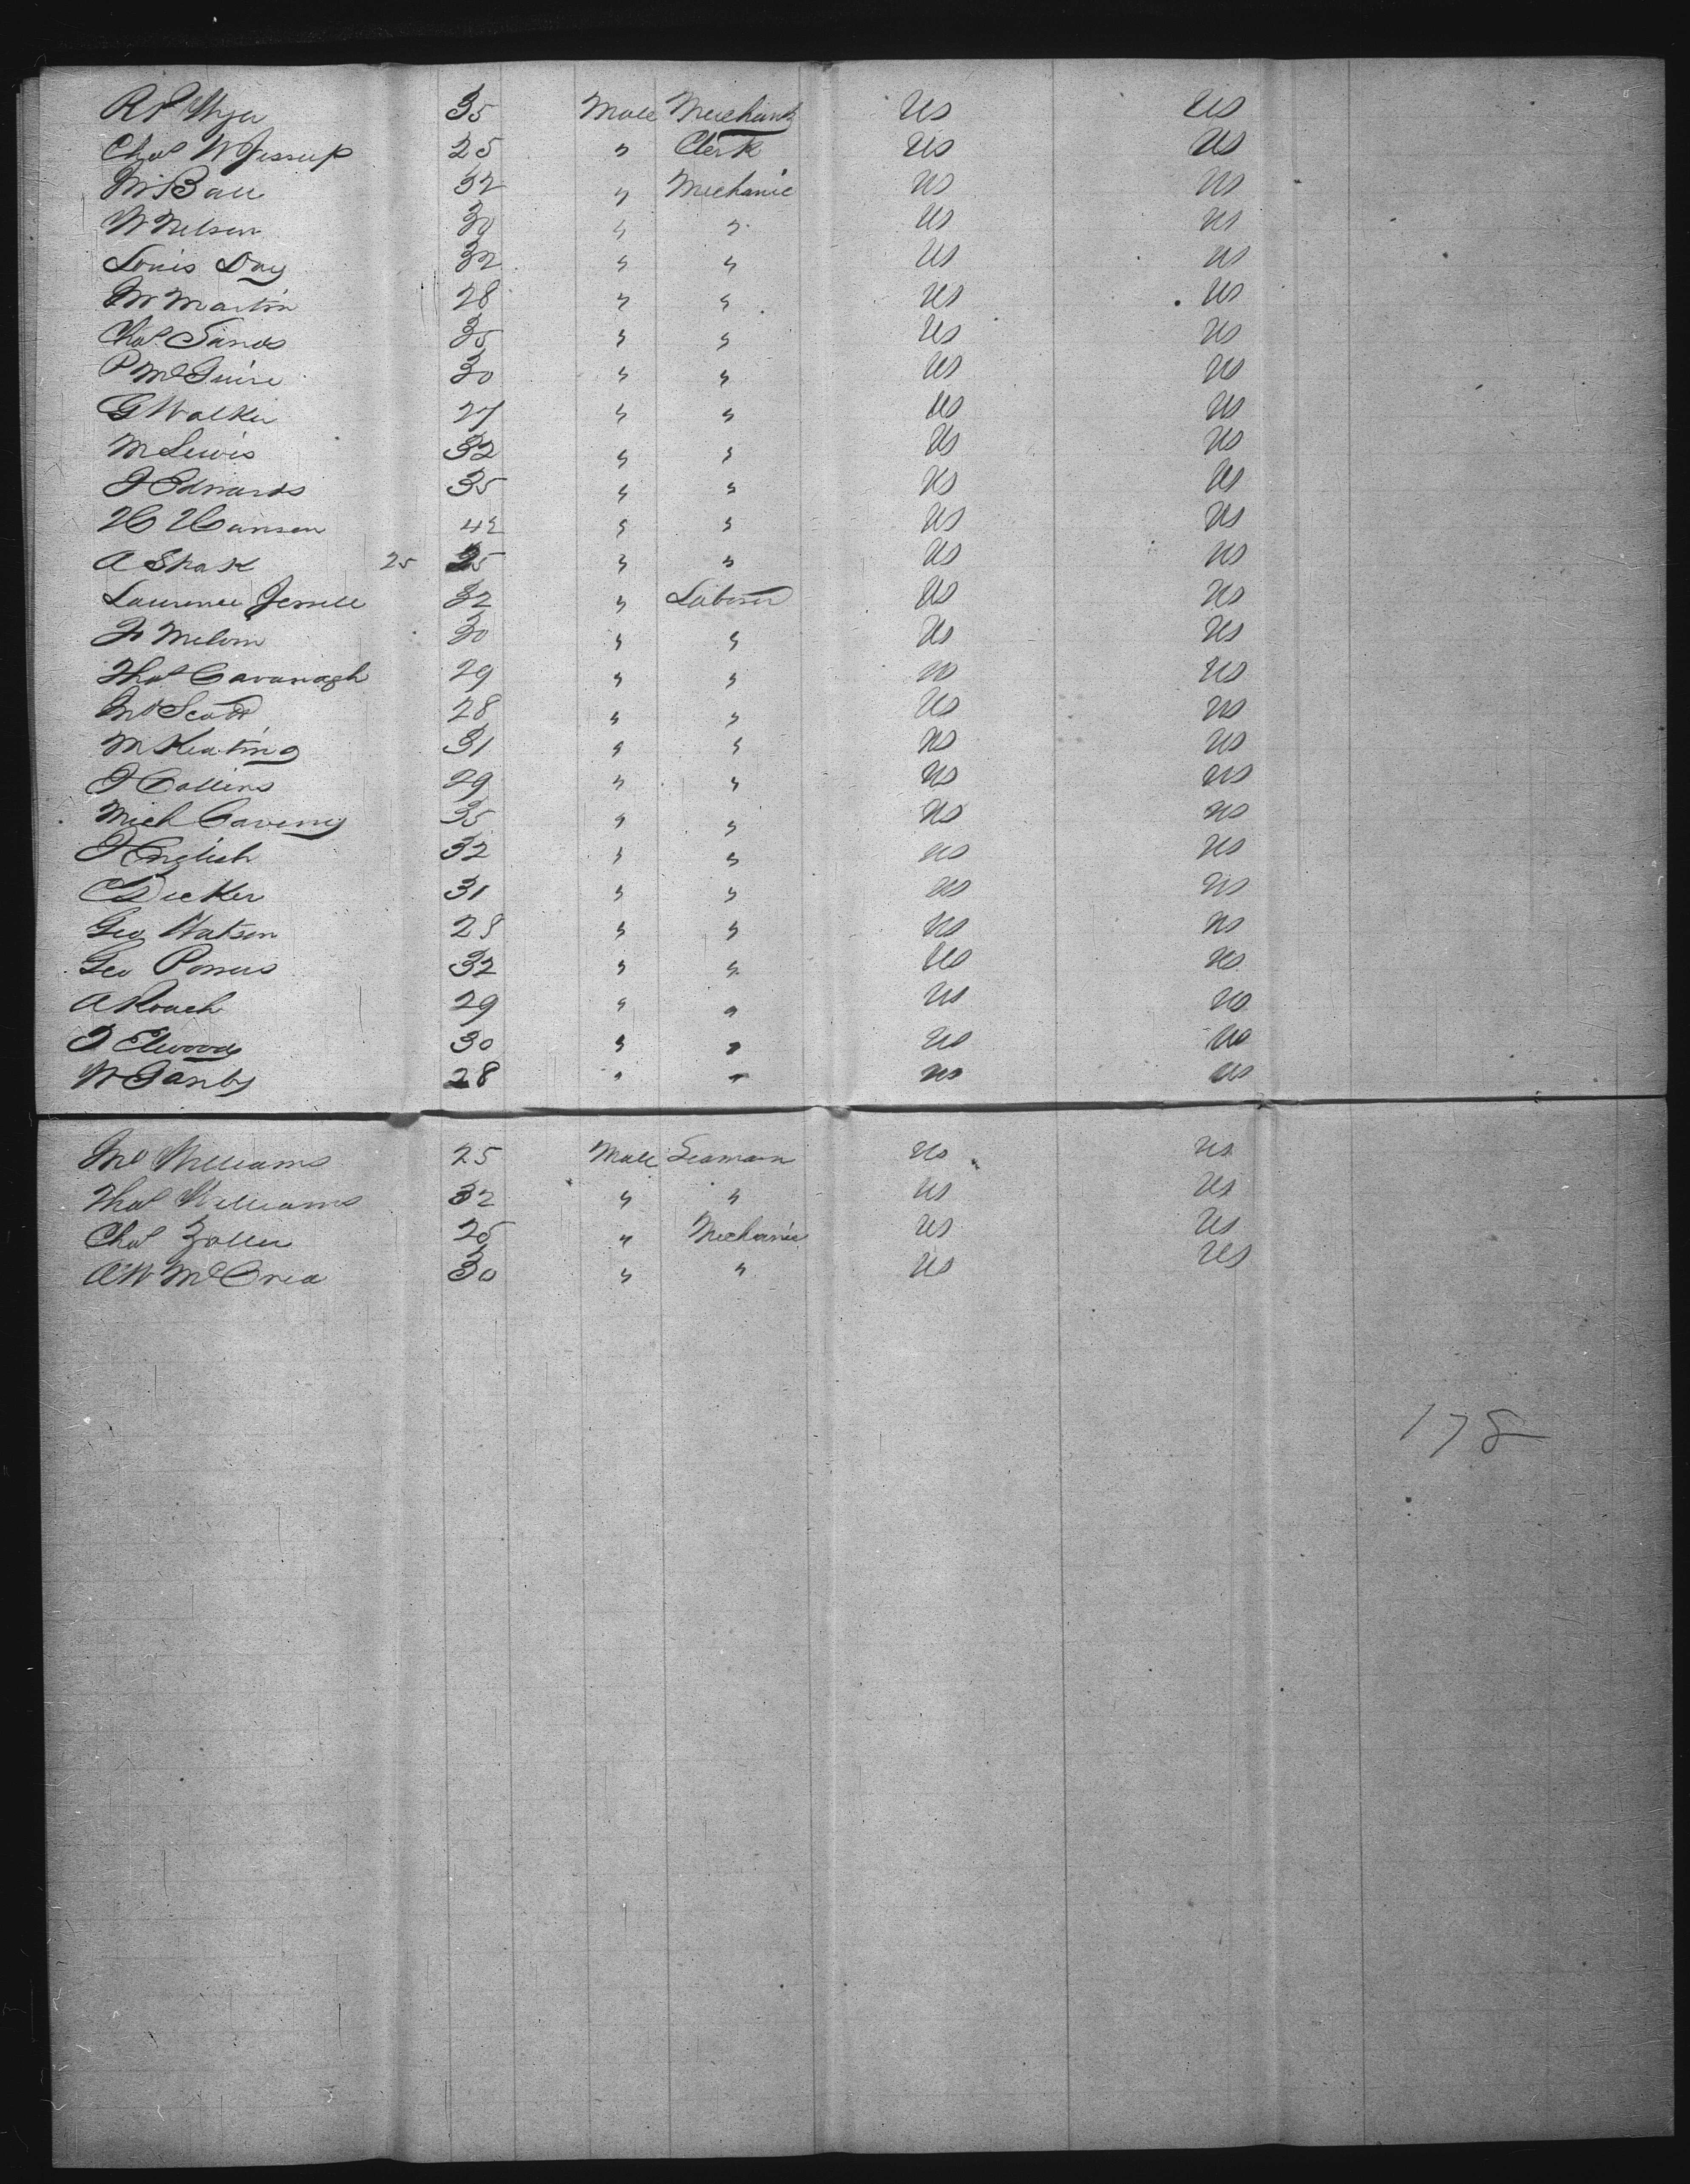 35 Male Merchant US US
Chas W Jessup 25 " Clerk US US
Wm Ball 32 " Mechanic US US
W Nelson 30 " " US US
Louis Day 32 " " US US
Wm Martin 28 " " US US
Chas Sands 35 " " US US
P McGuire 30 " " US US
G Walker 27 " " US US
M Lewis 32 " " US US
J Edwards 35 " " US US
H Hansen 42 " " US US
A Shask 25 25 " " US US
Laurence 32 " Laborer US US
30 " " US US
Thos Cavanagh 29 " " US US
Scott 28 " " US US
M Keating 31 " " US US
J Collins 29 " " US US
Mich 35 " " US US
J English 32 " " US US
C Decker 31 " " US US
Geo Watson 28 " " US US
Geo 32 " " US US
A Roach 29 " " US US
30 " " US US
W 28 " " US US
Jno Williams 25 Male Seaman US US
Thos Williams 32 " " US US
Chas Zoller 25 " Mechanic US US
A W McCrea 30 " " US US
178